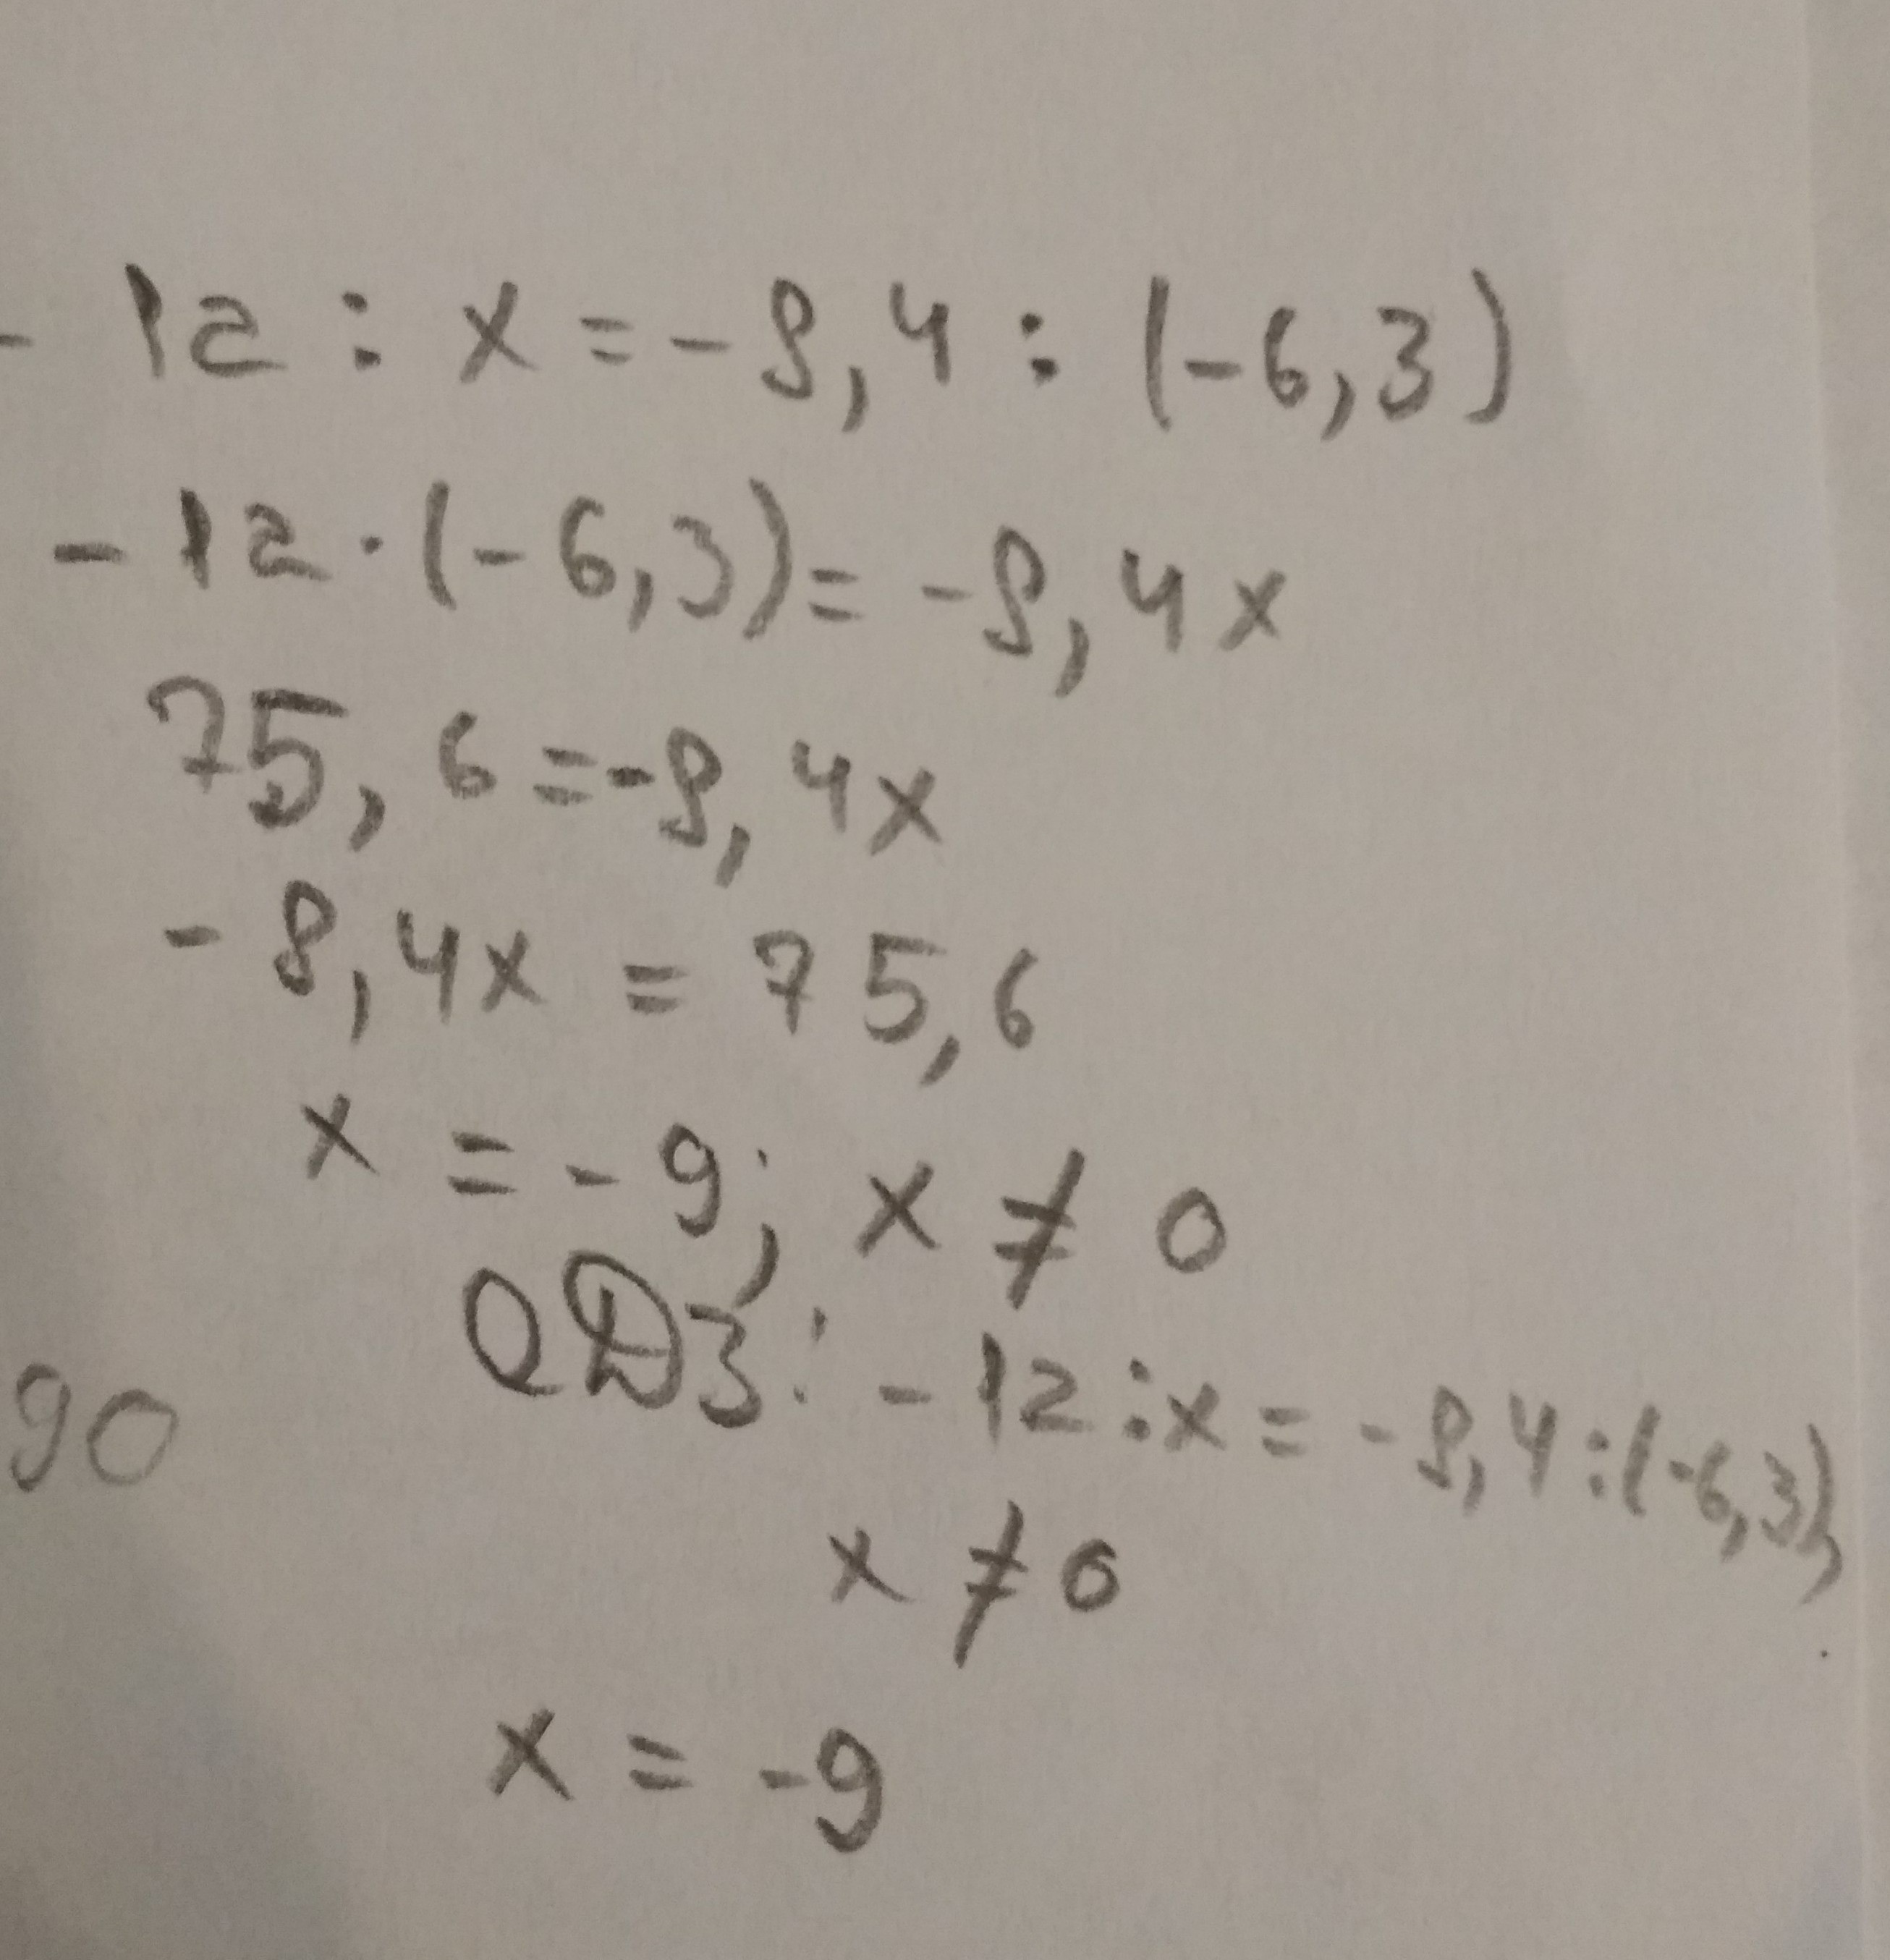 - 12 : x = - 8,4 : (-6,3)
- 12 · (- 6,3) = - 8,4x
75,6 = - 8,4x
- 8,4x = 75,6
x = - 9; x ≠ 0
ОДЗ: - 12 : x = - 8,4 : (-6,3),
90
x ≠ 0
x = -9